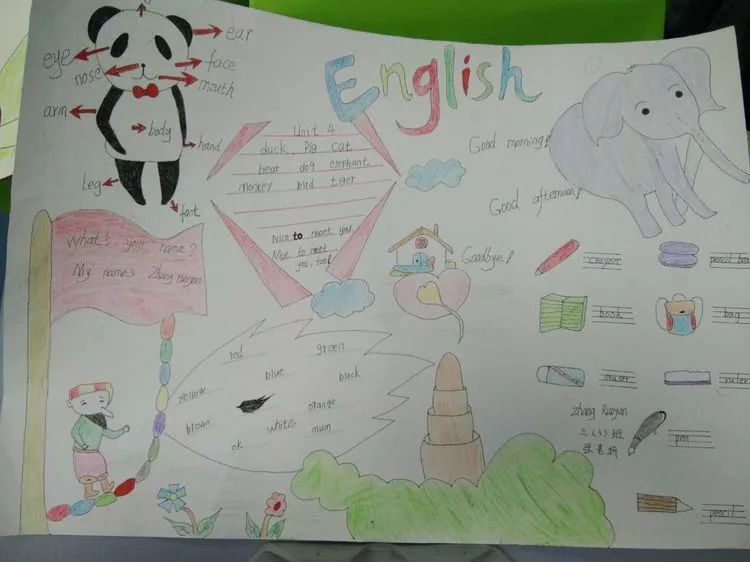 ear
eye
face
nose
mouth
arm
body
hand
leg
foot
English
Unit 4
duck Pig Cat
bear dog elephant
monkey bird tiger
Nice to meet you
Nice to meet
you, too!
Good morning!
Good afternoon!
Goodbye!
What's your name?
My name's Zhang Ruoyan
red
green
blue
black
yellow
orange
brown
white
mum
ok
crayon
pencil box
book
bag
eraser
ruler
Zhang Ruoyan
三(3)班
pen
pencil